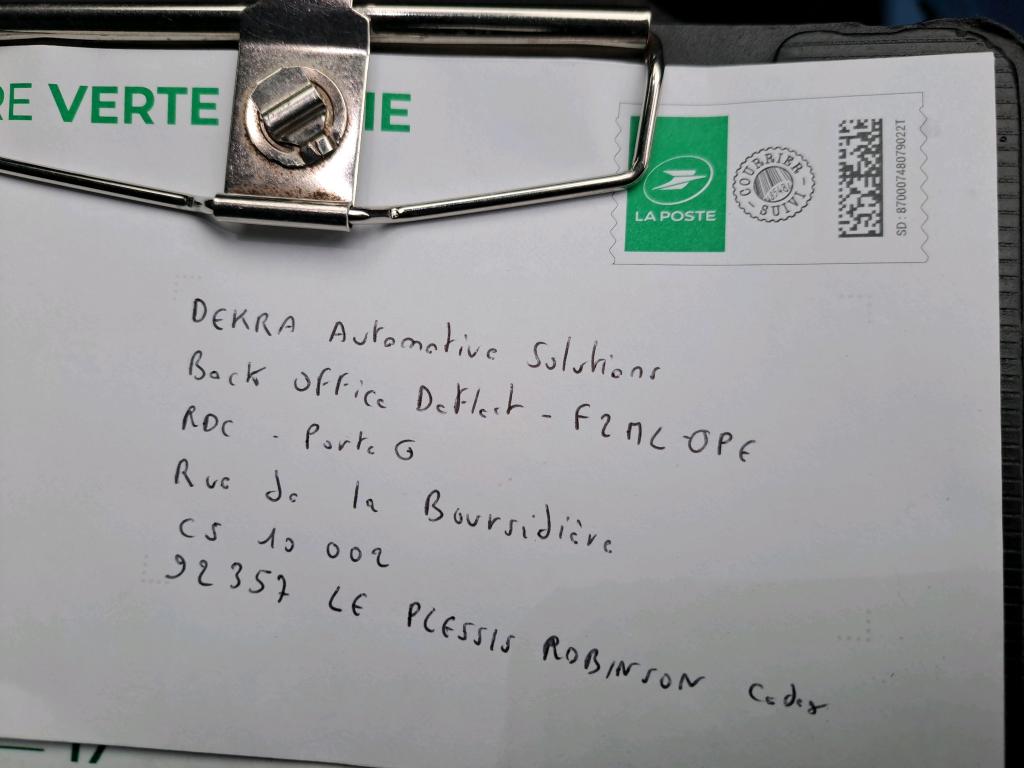 RE VERTE IE
LA POSTE
COURRIER SUIVI
SD : 87000748079022T
DEKRA Automotive Solutions
Back office Deflect - F2ML-OPE
RDC - Porte G
Rue de la Boursidière
CS 10 002
92357 LE PLESSIS ROBINSON Cedex